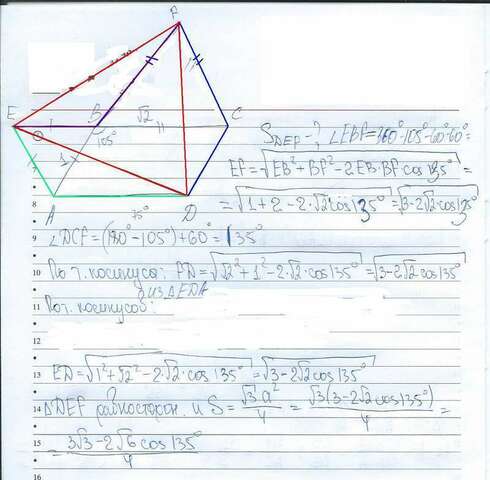 F
E
B
√2
C
105°
1
A
75°
D
S_DEF - ? ∠EBF=360°-105°-60°-60°=
EF = √EB²+BF²-2EB·BF cos135° =
= √1+2-2·√2cos135° = √3-2√2 cos135°
∠DCF = (180°-105°)+60° = 135°
По т. косинусов: FD = √√2²+1²-2·√2·cos135° = √3-2√2cos135°
из ΔEDA
По т. косинусов:
ED = √1²+√2²-2√2·cos135° = √3-2√2cos135°
ΔDEF равносторон. и S = √3a²/4 = √3(3-2√2cos135°)/4 =
= 3√3-2√6cos135°/4
8
9
10
11
12
13
14
15
16